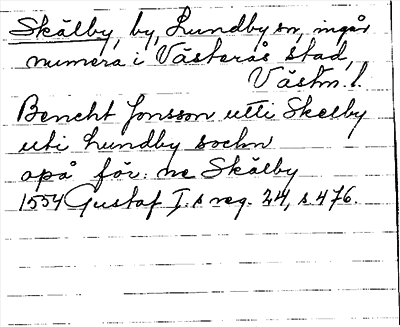 Skälby, by, Lundby sn, ingår
numera i Västerås stad,
Västm. l.
Bencht Jonsson utti Skelby
uti Lundby sochn
apå för: ne Skälby
1554 Gustaf I:s reg. 24, s. 476.